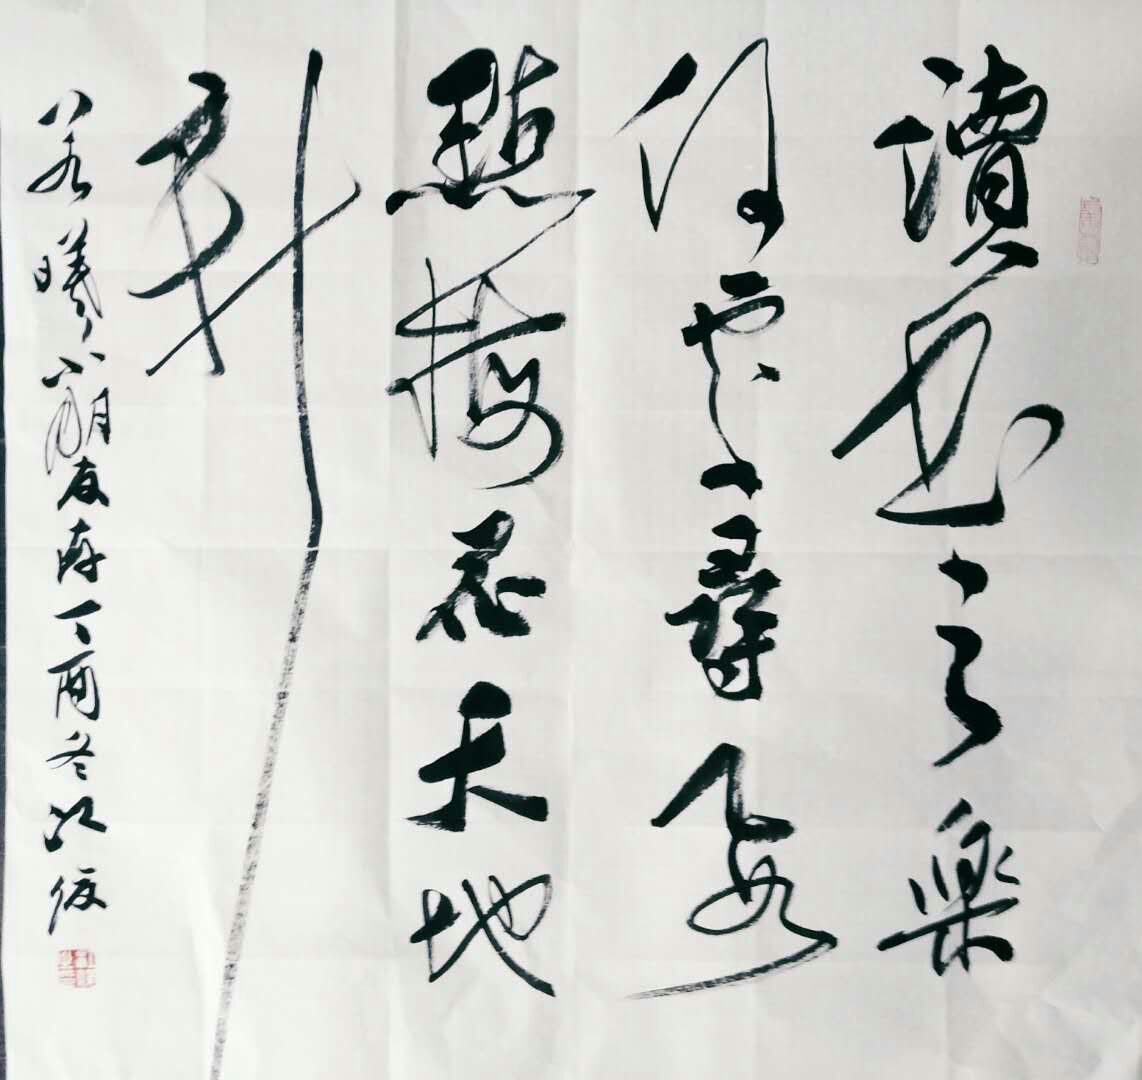 讀書之樂
何處尋數
點梅花天地
新
若曦小朋友存丁酉冬江